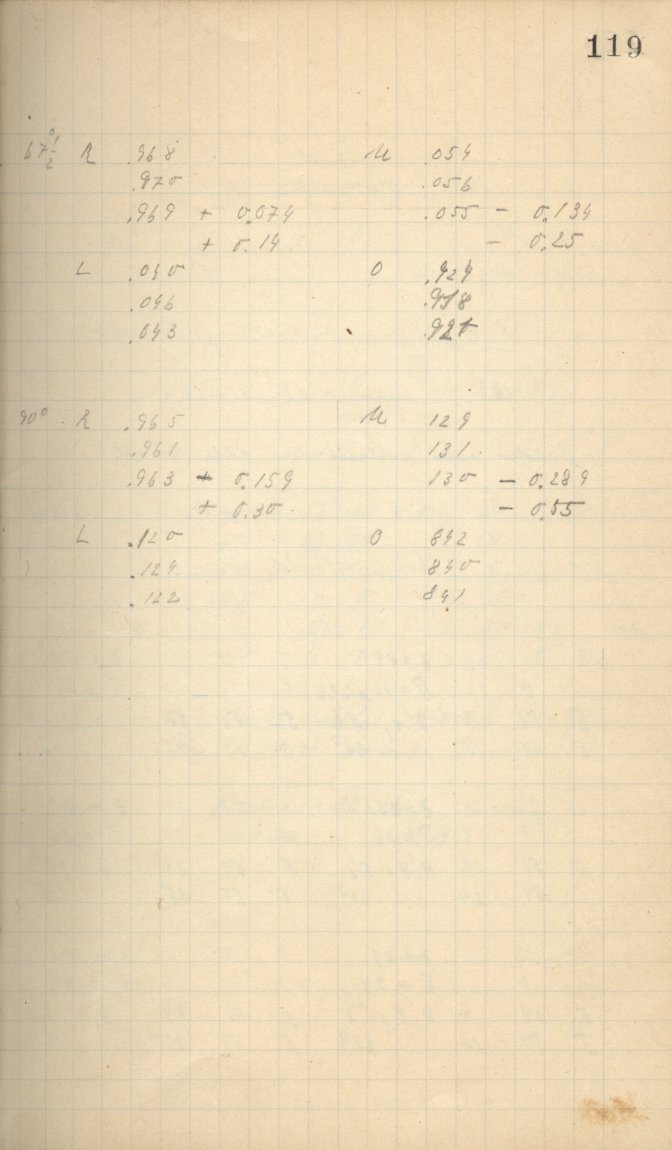 119
67 1/2° R .968 U .054
.970 .056
.969 + 0.074 .055 - 0.134
+ 0.14 - 0.25
L .040 O .924
.046 .918
.043 .921
90° R .965 U 129
.961 131
.963 + 0.159 130 - 0.289
+ 0.30 - 0.55
L .120 O 842
.124 840
.122 841